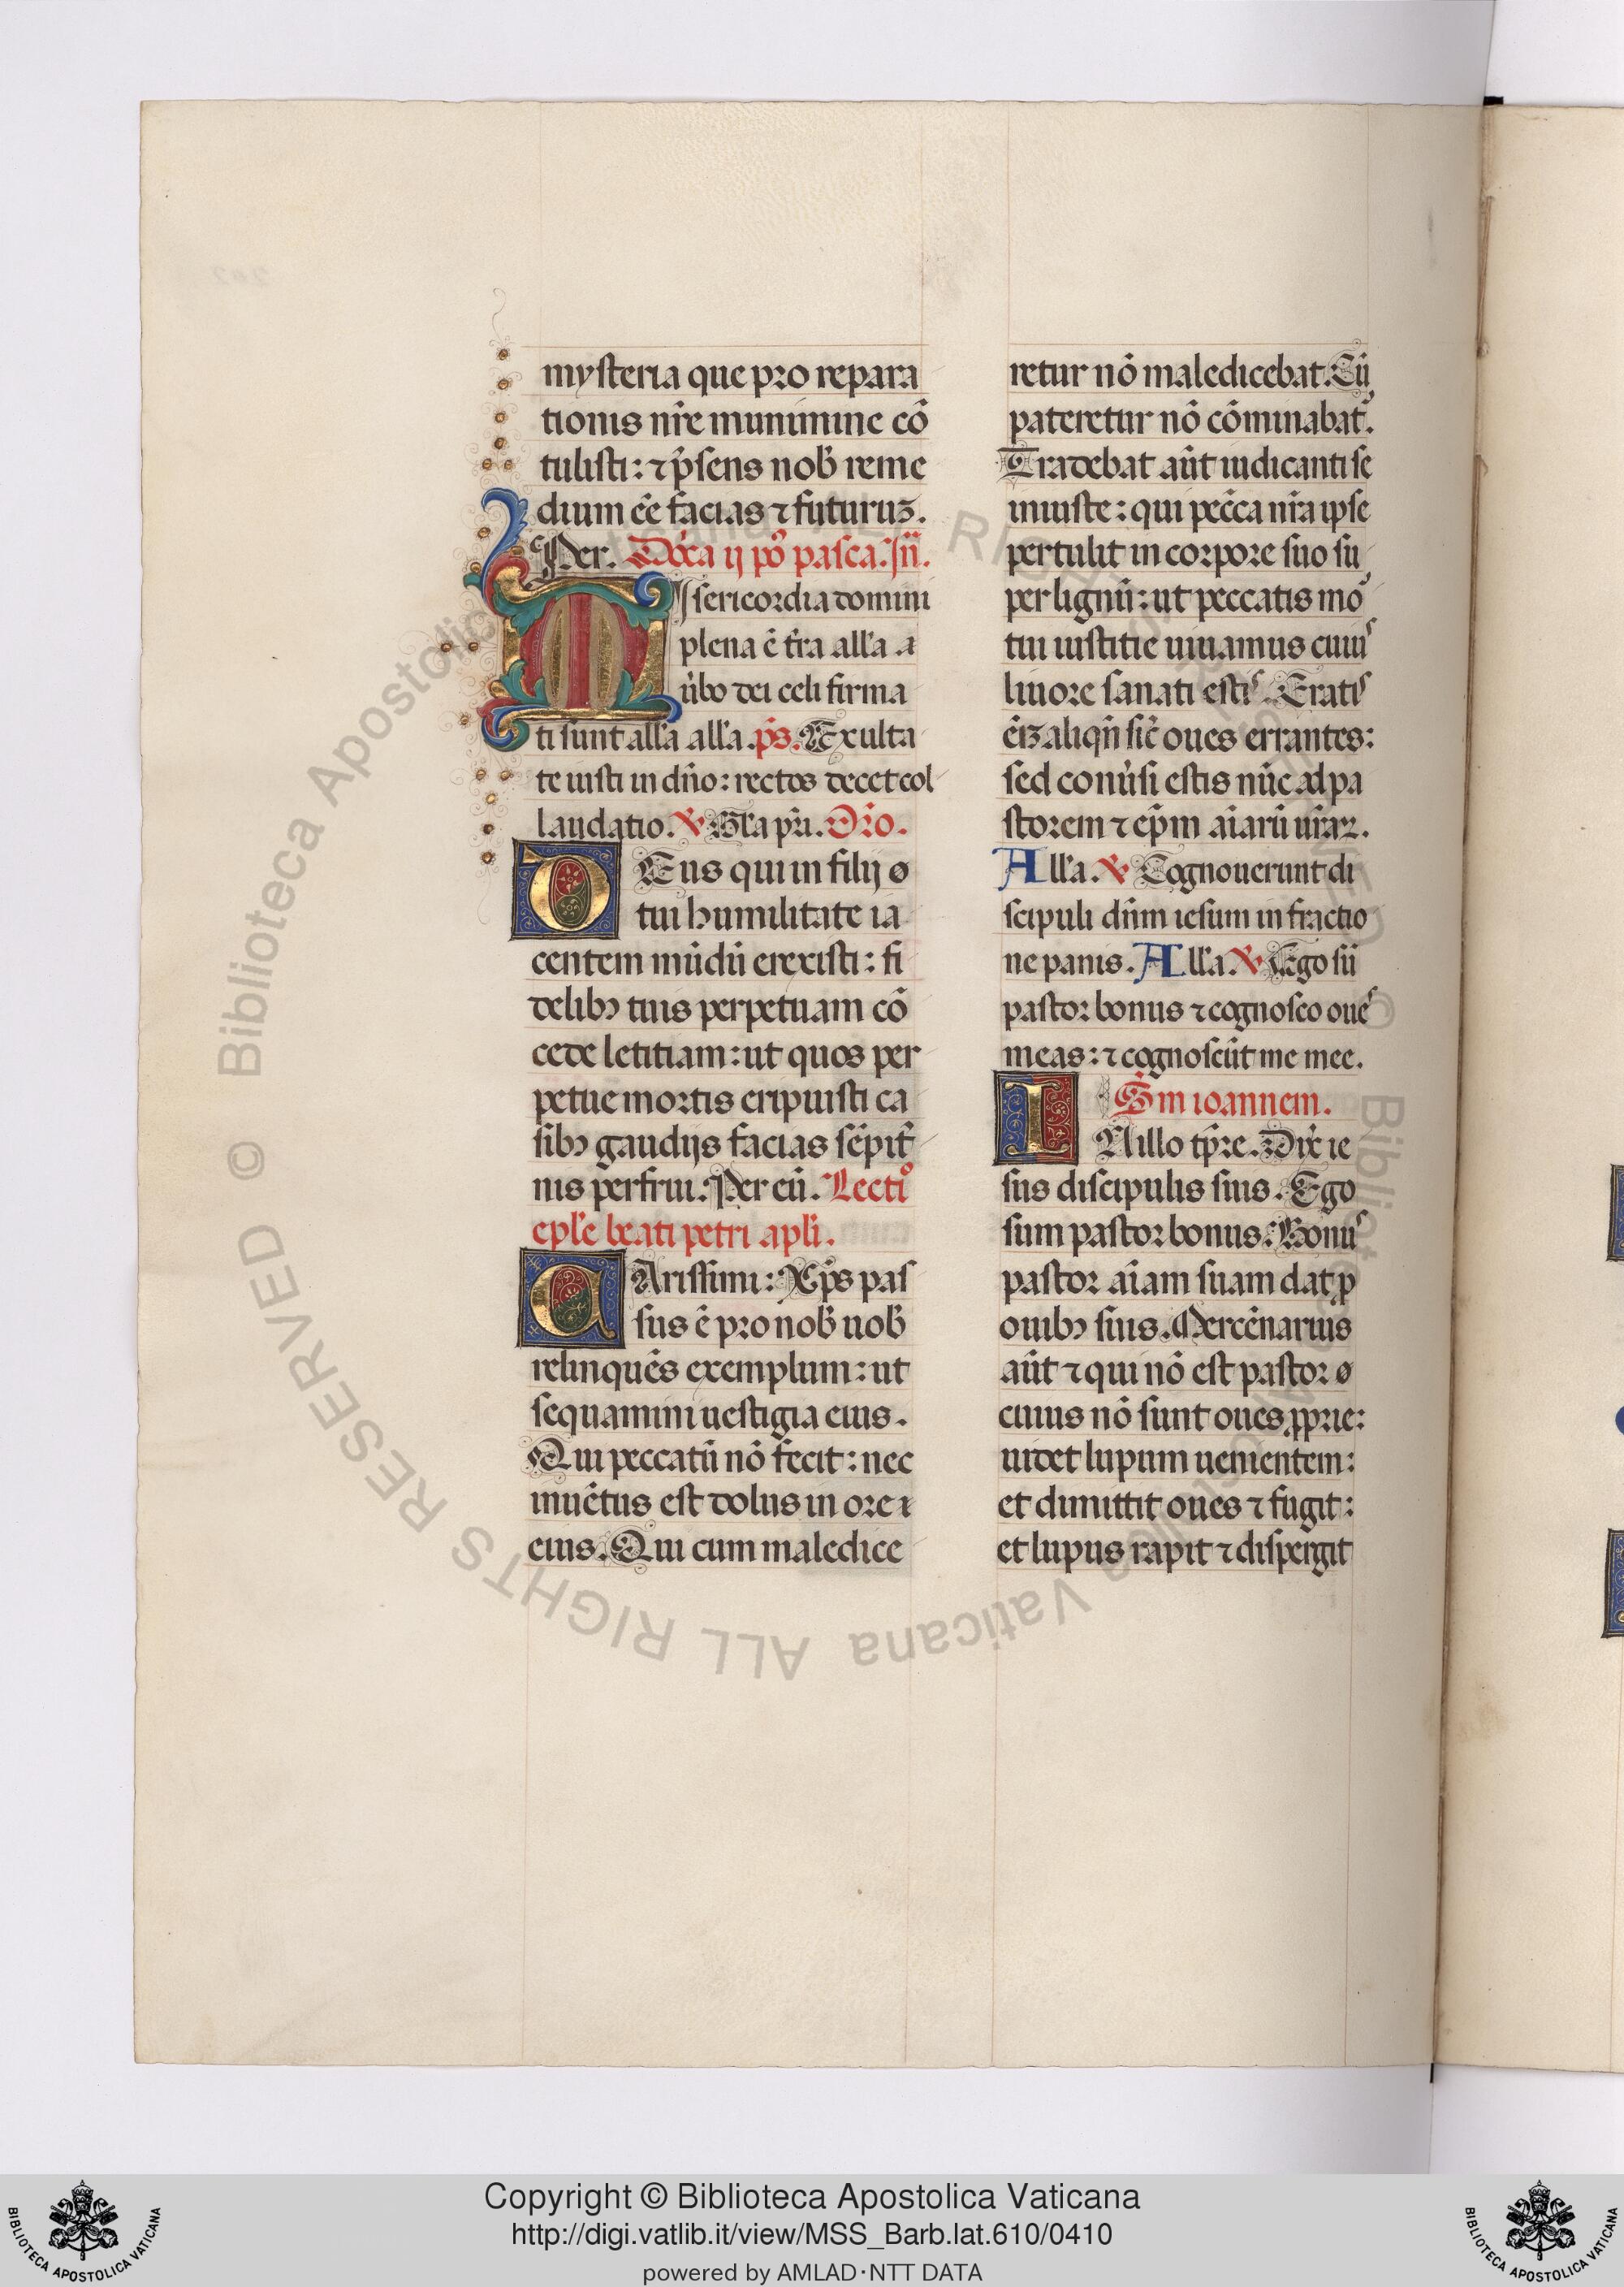 mysteria que pro repara
tionis nr̄e munimine cō
tulisti: ⁊ p̄sens nob̄ reme
dium ēē facias ⁊ futuruꝫ.
Per. Dōca ij pꝰ pasca. In̄.
Misericordia domini
plena ē tr̄a all'a a
ūbo dei celi firma
ti sunt all'a all'a. p̄s. Exulta
te iusti in dn̄o: rectos decet col
laudatio. ℣ Gl'a pr̄i. Or̄o.
DEus qui in filij
tui humilitate ia
centem mūdū erexisti: fi
delibꝫ tuis perpetuam cō
cede letitiam: ut quos per
petue mortis eripuisti ca
sibꝫ gaudijs facias sēpit̄
nis perfrui. Per eū. Lectiꝰ
epl'e beati petri apl'i.
CArissimi: Xp̄s pas
sus ē pro nob̄ uob̄
relinquēs exemplum: ut
sequamini uestigia eius.
Qui peccatū nō fecit: nec
inuētus est dolus in ore
eius. Qui cum maledice
retur nō maledicebat. Cū
pateretur nō cōminabat᷑.
Tradebat aūt iudicanti se
iniuste: qui pecc̄a nr̄a ipse
pertulit in corpore suo su
per lignū: ut peccatis mo᷑
tui iustitie uiuamus cuiuˢ
liuore sanati estiˢ. Eratiˢ
ēiꝫ aliqn̄ sic̄ oues errantes:
sed conūsi estis nūc ad pa
storem ⁊ ep̄m aīarū ur̄aꝝ.
All'a. ℣ Cognouerunt di
scipuli dn̄m iesum in fractio
ne panis. All'a. ℣ Ego sū
pastor bonus ⁊ cognosco oueˢ
meas: ⁊ cognoscūt me mee.
Sm̄ ioannem.
INillo tp̄re. Dix̄ ie
sus discipulis suis. Ego
sum pastor bonus. Bonuˢ
pastor aīam suam dat ꝓ
ouibꝫ suis. Mercēnarius
aūt ⁊ qui nō est pastor
cuius nō sunt oues ꝓprie:
uidet lupum uenientem:
et dimittit oues ⁊ fugit:
et lupus rapit ⁊ dispergit
© Biblioteca Apostolica Vaticana ALL RIGHTS RESERVED
Copyright © Biblioteca Apostolica Vaticana
http://digi.vatlib.it/view/MSS_Barb.lat.610/0410
powered by AMLAD·NTT DATA
BIBLIOTECA APOSTOLICA VATICANA
BIBLIOTECA APOSTOLICA VATICANA